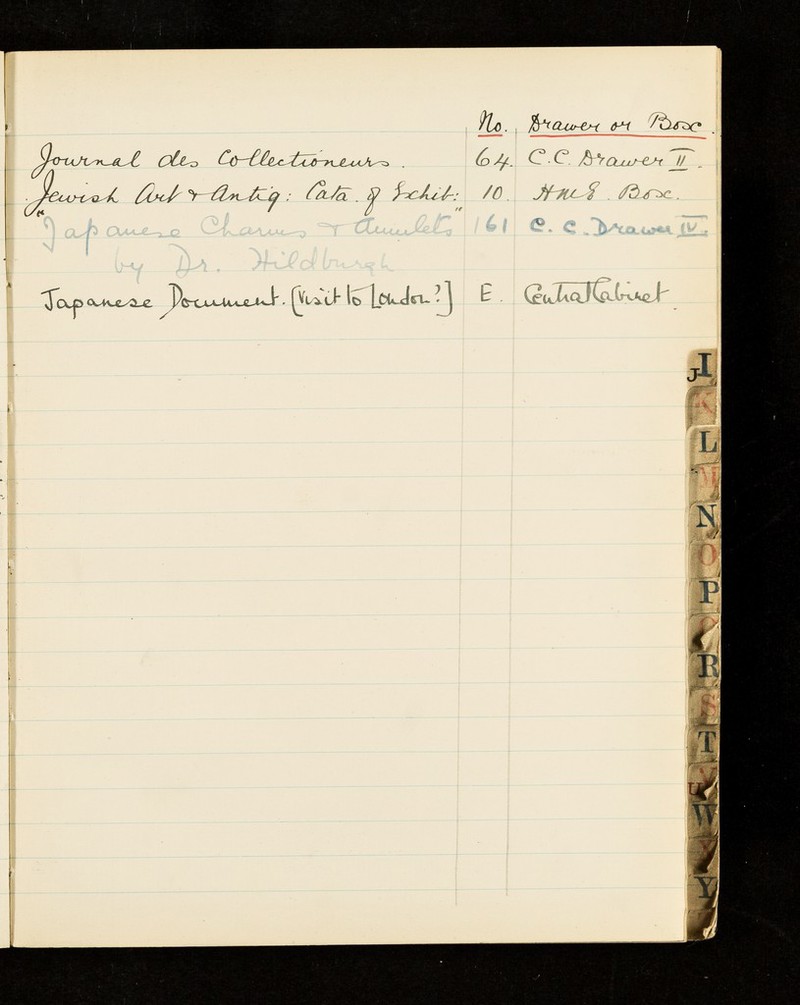 No. Drawer or Box.
Journal des Collectioneurs. 64. C.C. Drawer II.
Jewish Art & Antiq: Cata. of Exhib: 10. HME. Box.
"Japanese Charms & Amulets" 161 C. C. Drawer IV.
by Dr. Hildburgh
Japanese Document. [Visit to London?] E. Central Cabinet.
I
J
K
L
M
N
O
P
R
S
T
V
U
W
X
Y